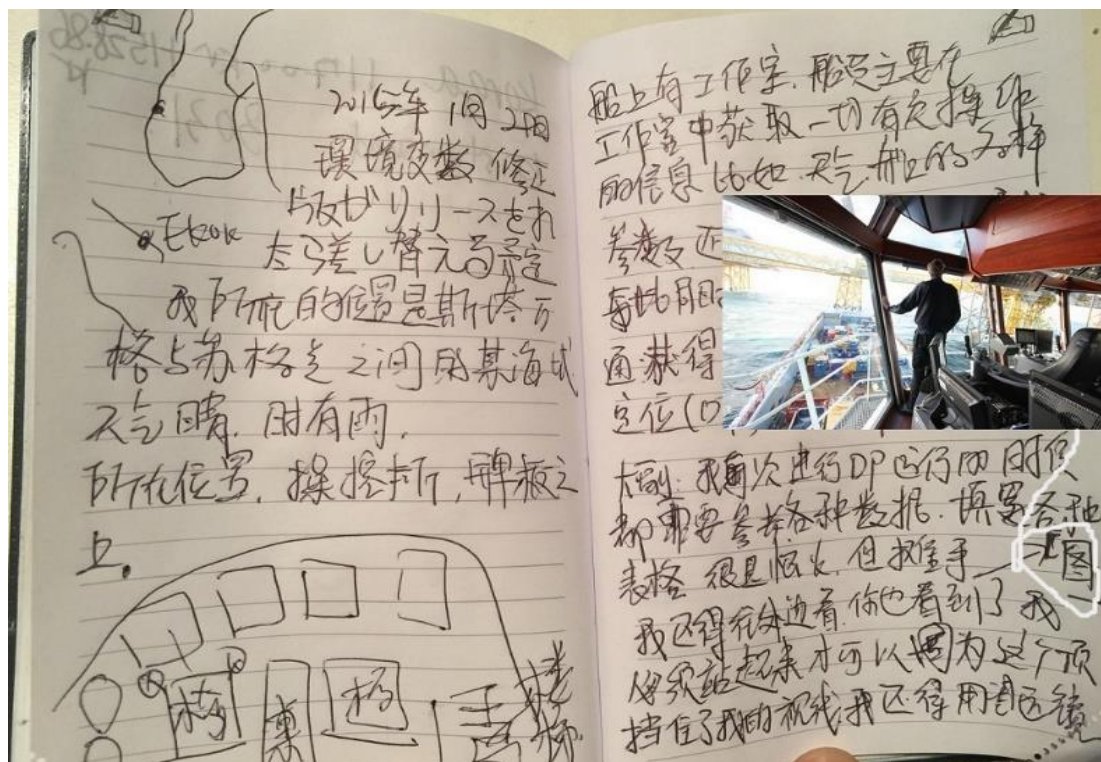 2015年1月2日
環境変数 修正
版がリリースされ
たら差し替える予定
Ekok
我所在的位置是斯塔万
格与苏格兰之间的某海域
天气晴,时有雨,
所在位置,操控所,甲板之
上。
椅
桌
椅
船上有工作室,船员主要在
工作室中获取一切有关操作
的信息 比如,天气,船的各种
参数及
每
通获得
定位(D
大副:我每次进行DP运行的时候
都需要参考各种数据,填写各种
表格 很是恼火,但拉上手
图
我还得往外边看,你也看到了 我
必须站起来才可以 因为这个顶
挡住了我的视线,我还得用望远镜